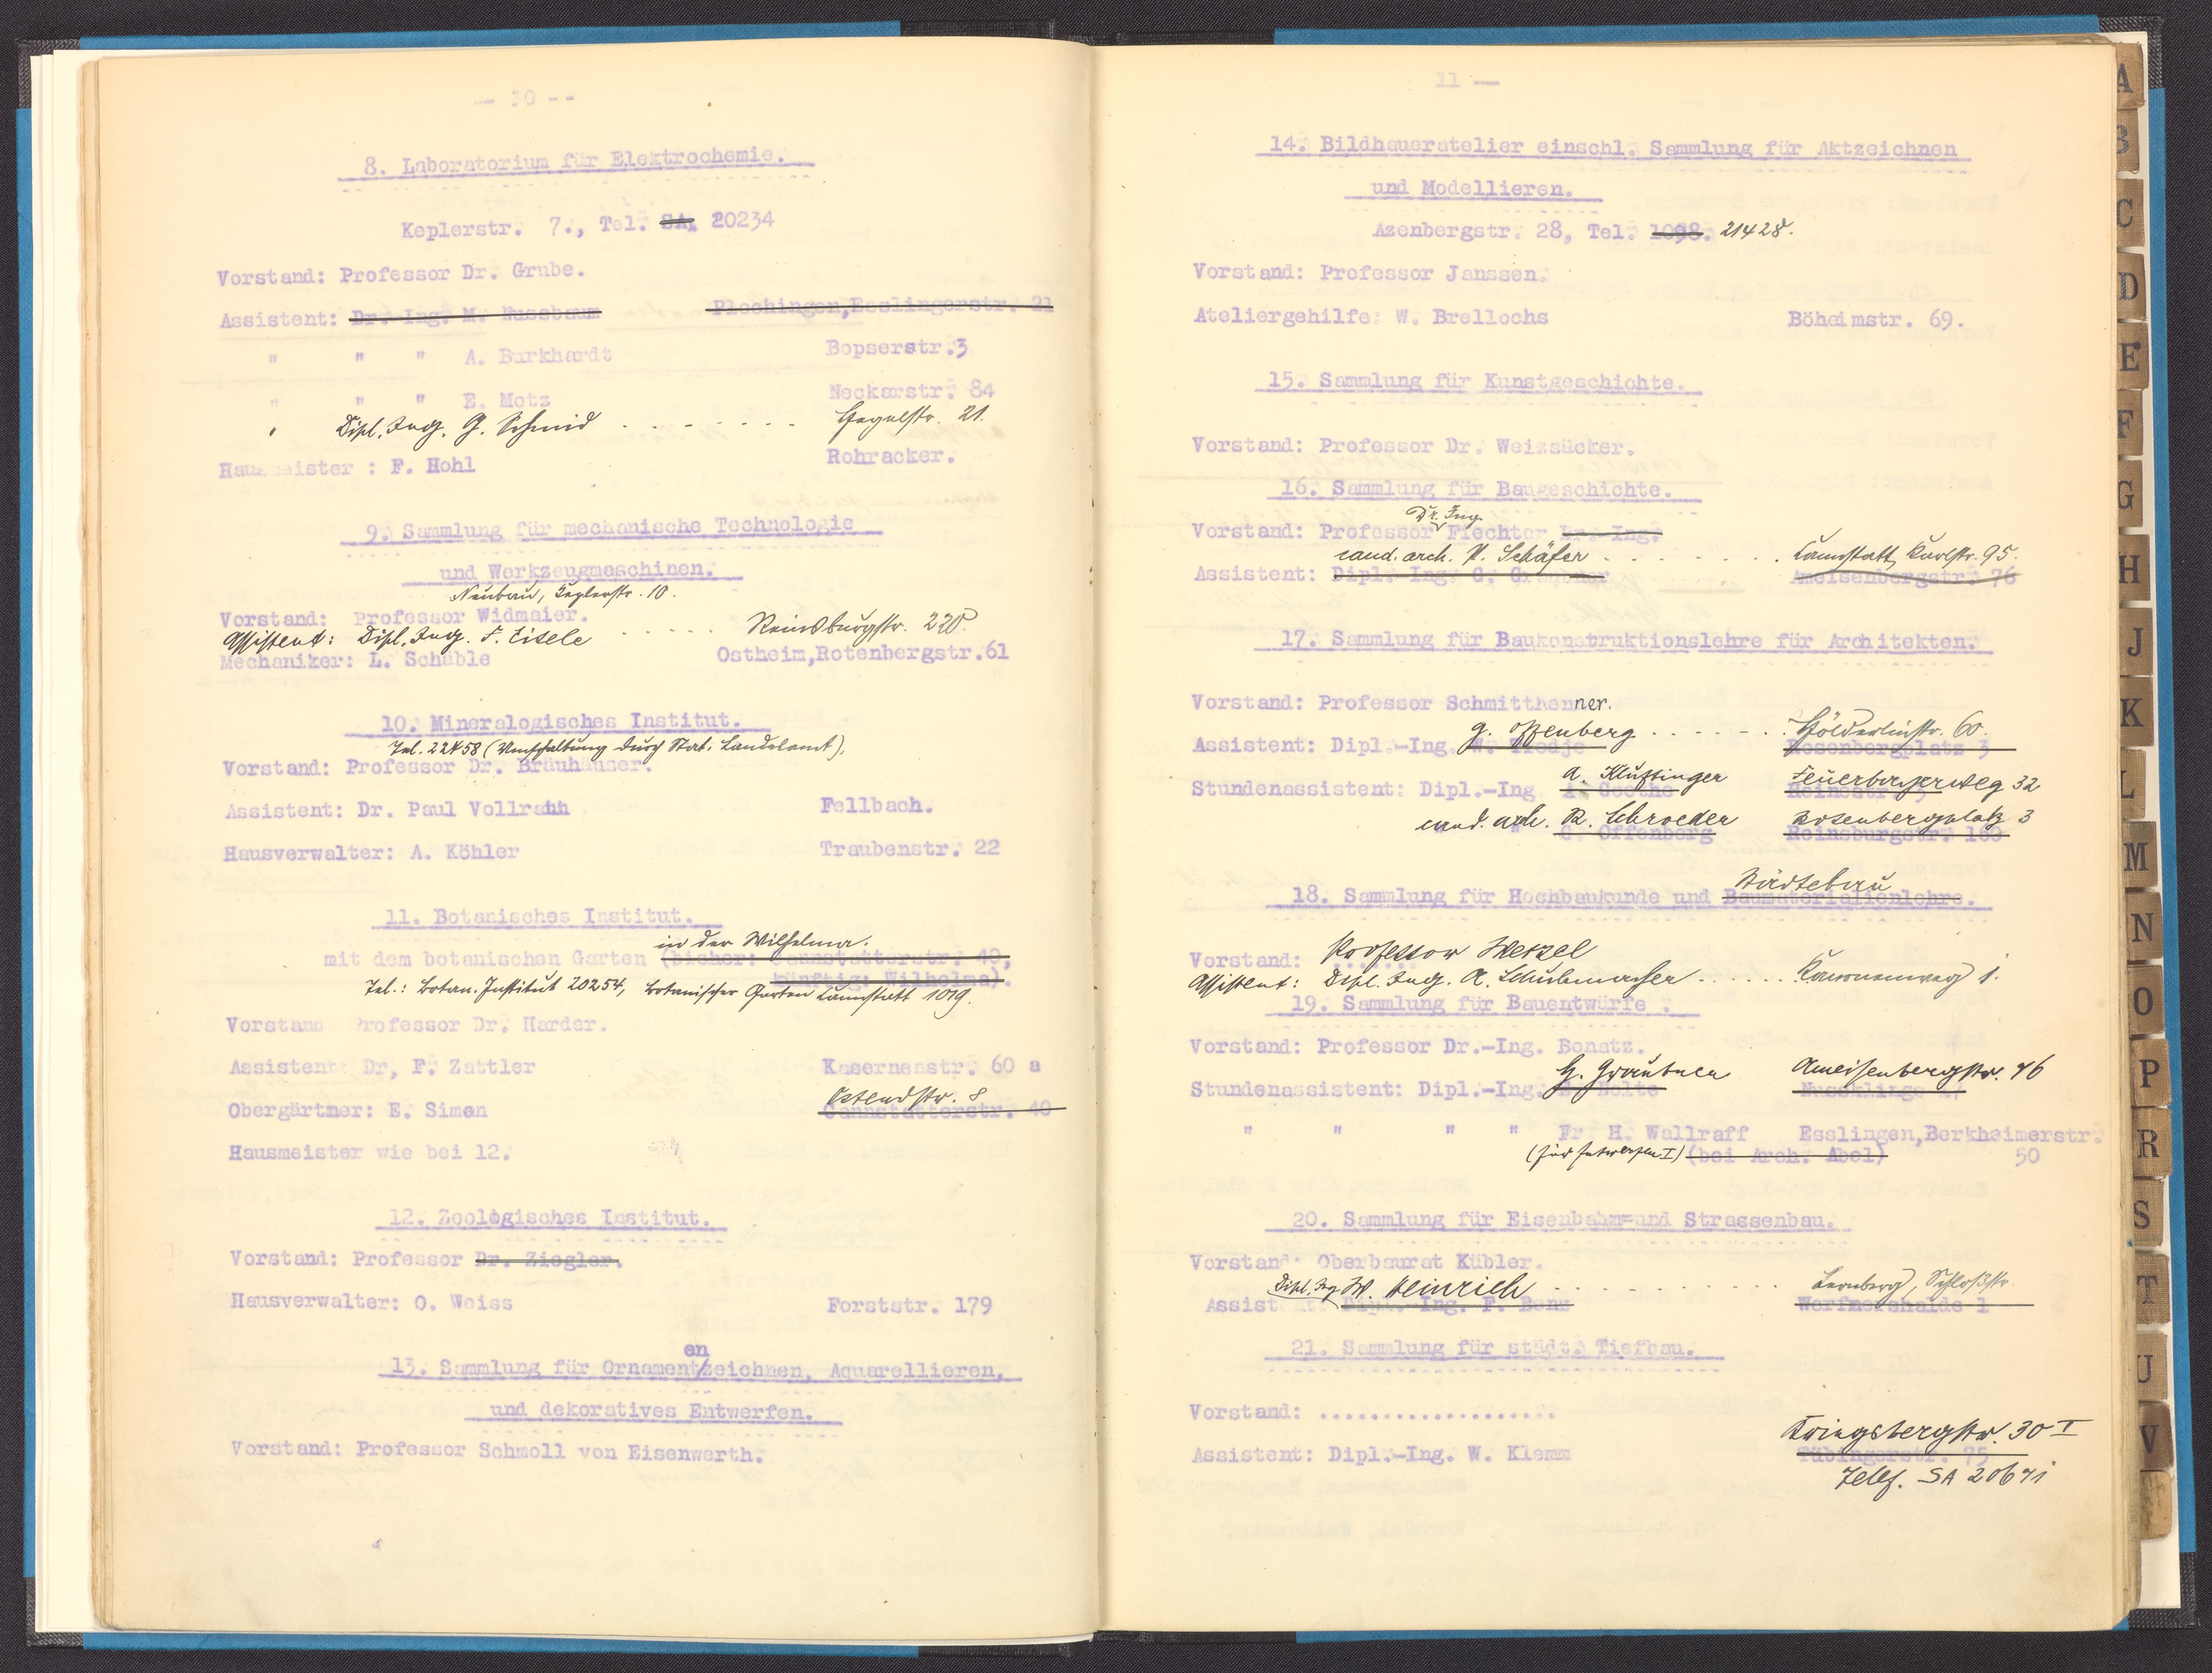 — 10 —
8. Laboratorium für Elektrochemie.
Keplerstr. 7., Tel. SA. 20234
Vorstand: Professor Dr. Grube.
Assistent: Dr. Ing. M. Nussbaum Plochingen, Esslingerstr. 21
" " " A. Burkhardt Bopserstr. 3
" " " E. Motz Neckarstr. 84
" Dipl. Ing. G. Schmid - - - - - - - - Hegelstr. 21.
Hausmeister : F. Hohl Rohracker.
9. Sammlung für mechanische Technologie
und Werkzeugmaschinen.
Neubau, Keplerstr. 10.
Vorstand: Professor Widmaier.
Assistent: Dipl. Ing. F. Eisele - - - - - Reinsburgstr.
Mechaniker: L. Schäble Ostheim, Rotenbergstr. 61
10. Mineralogisches Institut.
Tel. 22458 (Umschaltung durch Stat. Landesamt),
Vorstand: Professor Dr. Bräuhäuser.
Assistent: Dr. Paul Vollrath Fellbach.
Hausverwalter: A. Köhler Traubenstr. 22
11. Botanisches Institut.
in der Wilhelma.
mit dem botanischen Garten (bisher: Cannstatterstr. 40,
künftig: Wilhelma).
Tel.: Botan. Institut 20254, Botanischer Garten Cannstatt 1019.
Vorstand Professor Dr. Harder.
Assistent: Dr, F. Zattler Kasernenstr. 60 a
Ostendstr. 8
Obergärtner: E. Simon Cannstatterstr. 40
Hausmeister wie bei 12.
12. Zoologisches Institut.
Vorstand: Professor Dr. Ziegler.
Hausverwalter: O. Weiss Forststr. 179
en
13. Sammlung für Ornament/zeichnen, Aquarellieren,
und dekoratives Entwerfen.
Vorstand: Professor Schmoll von Eisenwerth.
11 —
14. Bildhaueratelier einschl. Sammlung für Aktzeichnen
und Modellieren.
Azenbergstr. 28, Tel. 1098. 21428.
Vorstand: Professor Janssen.
Ateliergehilfe: W. Brellochs Böheimstr. 69.
15. Sammlung für Kunstgeschichte.
Vorstand: Professor Dr. Weizsäcker.
16. Sammlung für Baugeschichte.
Dr. Ing.
Vorstand: Professor Fiechter Dr. Ing.
cand. arch. V. Schäfer - - - - - - Cannstatt, Karlstr. 95.
Assistent: Dipl. Ing. G. Graubner Ameisenbergstr. 76
17. Sammlung für Baukonstruktionslehre für Architekten.
Vorstand: Professor Schmitthenner.
G. Offenberg - - - - - - Hölderlinstr. 60.
Assistent: Dipl.-Ing. W. Tiedje Rosenbergplatz 3
A. Kluftinger Feuerbacherweg 32
Stundenassistent: Dipl.-Ing. Goethe Heinestr.
cand. arch. R. Schroeder Rosenbergplatz 3
G. Offenberg Reinsburgstr. 160
Städtebau
18. Sammlung für Hochbaukunde und Baumaterialienlehre.
Vorstand: Professor Wetzel
Assistent: Dipl. Ing. A. Schuhmacher - - - - - - 1.
19. Sammlung für Bauentwürfe .
Vorstand: Professor Dr.-Ing. Bonatz.
G. Graubner Ameisenbergstr. 76
Stundenassistent: Dipl.-Ing. Nolte Nussklinge
" " " " Fr H. Wallraff Esslingen, Berkheimerstr.
(für Entwerfen I) (bei Arch. Abel) 50
20. Sammlung für Eisenbahn- und Strassenbau.
Vorstand: Oberbaurat Kübler.
Dipl. Ing. W. Heinrich - - - - - - - - - - Leonberg, Schloßstr.
Assistent: Dipl.-Ing. F. Bens Werfmershalde 1
21. Sammlung für städt. Tiefbau.
Vorstand: ....................
Kriegsbergstr. 30 I
Assistent: Dipl.-Ing. W. Klemm Tübingerstr. 75
Telef. SA 20641
A
B
C
D
E
F
G
H
J
K
L
M
N
O
P
R
S
T
U
V